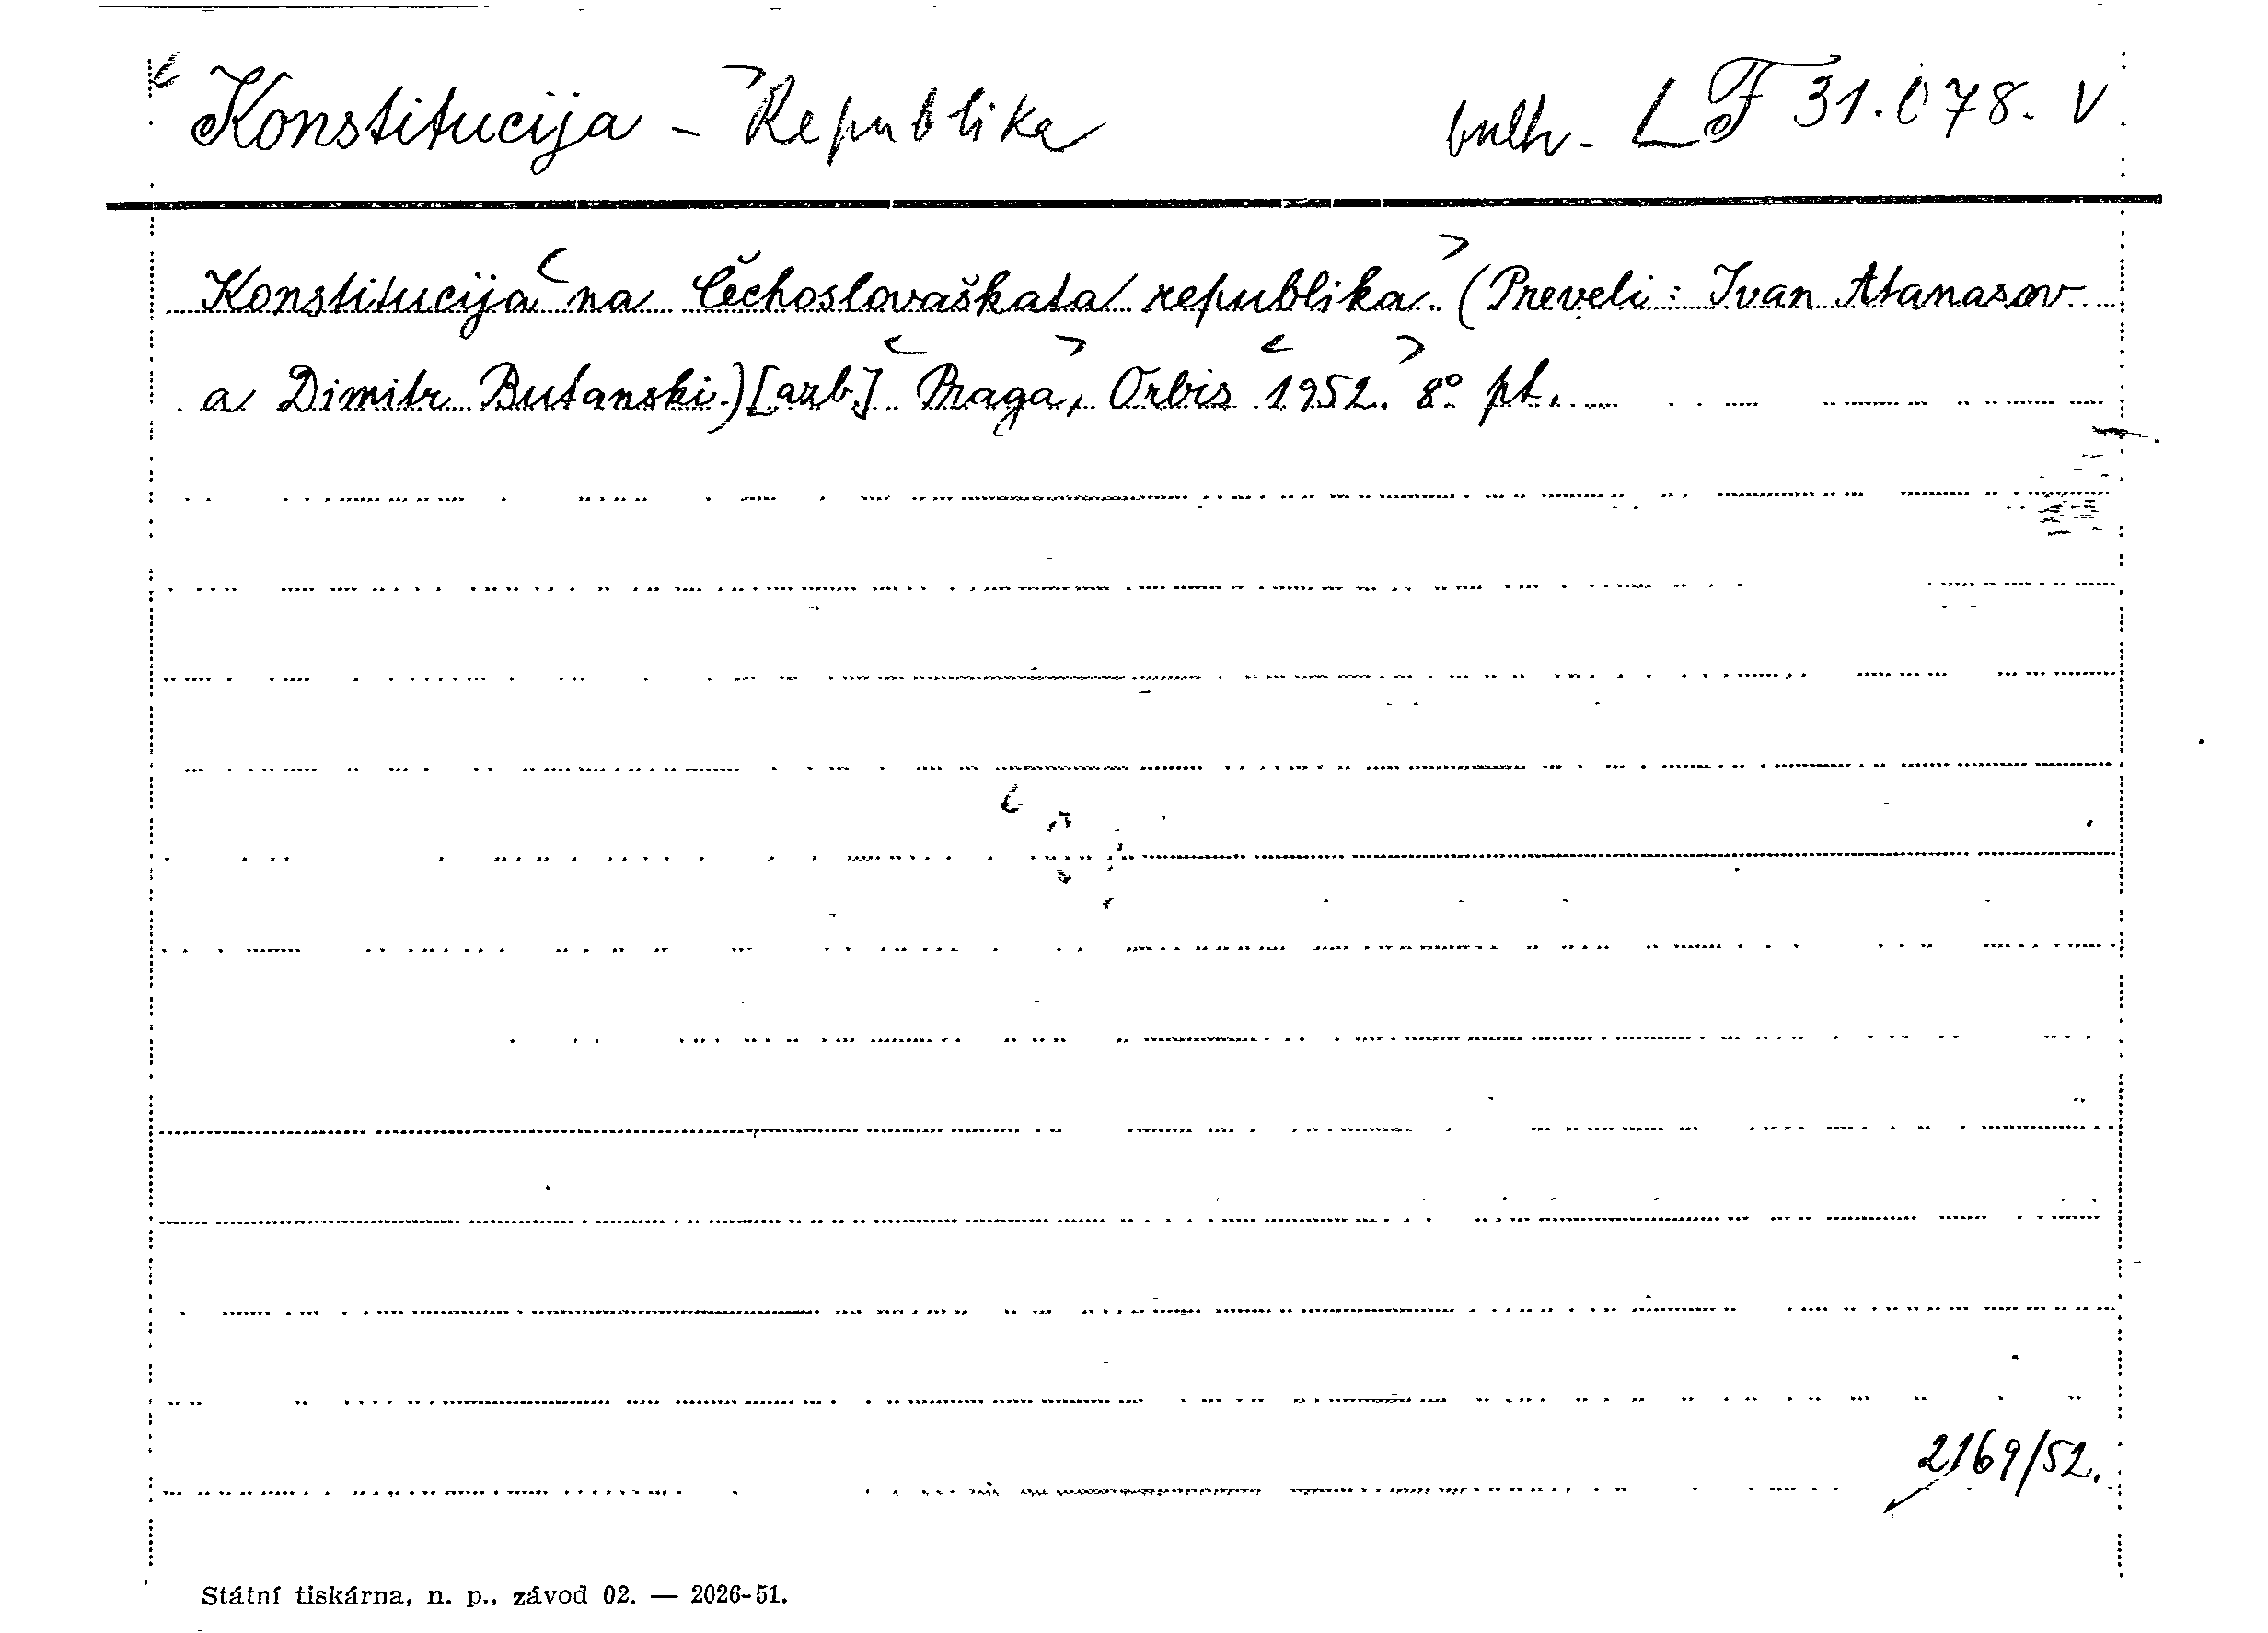 Konstitucija - Republika bulh. LF 31.078. V
Konstitucija na Čechoslovaškata republika. (Preveli: Ivan Atanasov
a Dimitr Butanski.) [azb.] Praga, Orbis 1952. 8° pt.
2169/52.
Státní tiskárna, n. p., závod 02. — 2026-51.